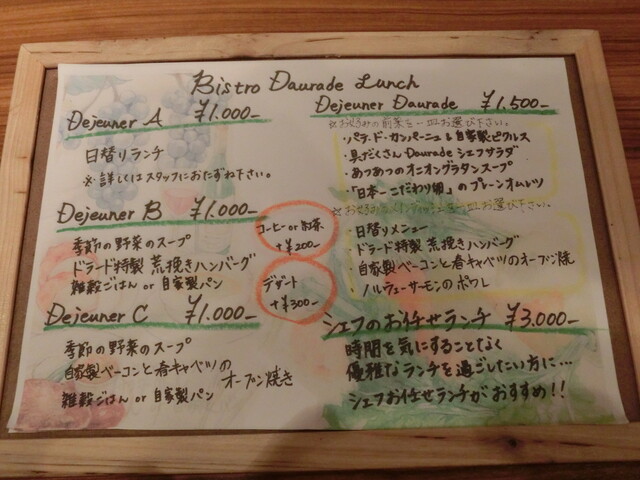 Bistro Daurade Lunch
Dejeuner A ¥1.000-
日替りランチ
※詳しくはスタッフにおたずね下さい。
Dejeuner B ¥1.000-
季節の野菜のスープ
ドラード特製 荒挽きハンバーグ
雑穀ごはん or 自家製パン
コーヒー or 紅茶
+¥200-
デザート
+¥300-
Dejeuner C ¥1.000-
季節の野菜のスープ
自家製ベーコンと春キャベツの
オーブン焼き
雑穀ごはん or 自家製パン
Dejeuner Daurade ¥1.500-
※お好みの前菜を一皿お選び下さい。
・パテ・ド・カンパーニュ & 自家製ピクルス
・具だくさん Daurade シェフサラダ
・あつあつのオニオングラタンスープ
・「日本一こだわり卵」のプレーンオムレツ
※お好みのメインディッシュを一皿お選び下さい。
・日替りメニュー
・ドラード特製 荒挽きハンバーグ
・自家製ベーコンと春キャベツのオーブン焼
・ノルウェーサーモンのポワレ
シェフのお任せランチ ¥3.000-
時間を気にすることなく
優雅なランチを過ごしたい方に…
シェフお任せランチがおすすめ!!